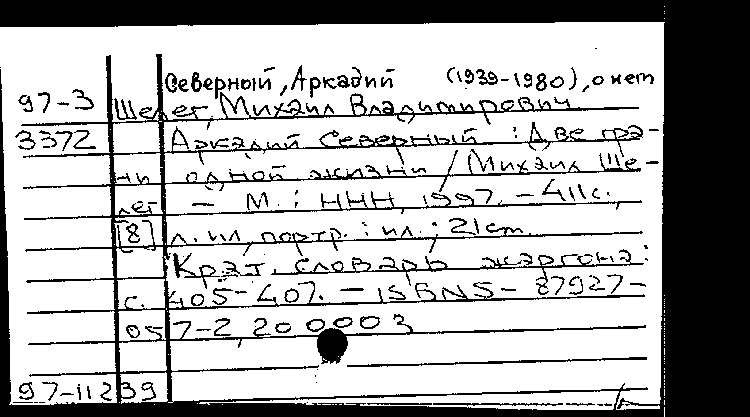 Северный, Аркадий (1939-1980), о нем
97-3 Шелег, Михаил Владимирович.
3372 Аркадий Северный : Две гра-
ни одной жизни / Михаил Ше-
лег - М. : ННН, 1997. - 411с.,
[8] л. ил, портр. : ил. ; 21см.
Крат. словарь жаргона:
с. 405-407. - ISBN 5-87927-
057-2, 20 000 З
97-11239